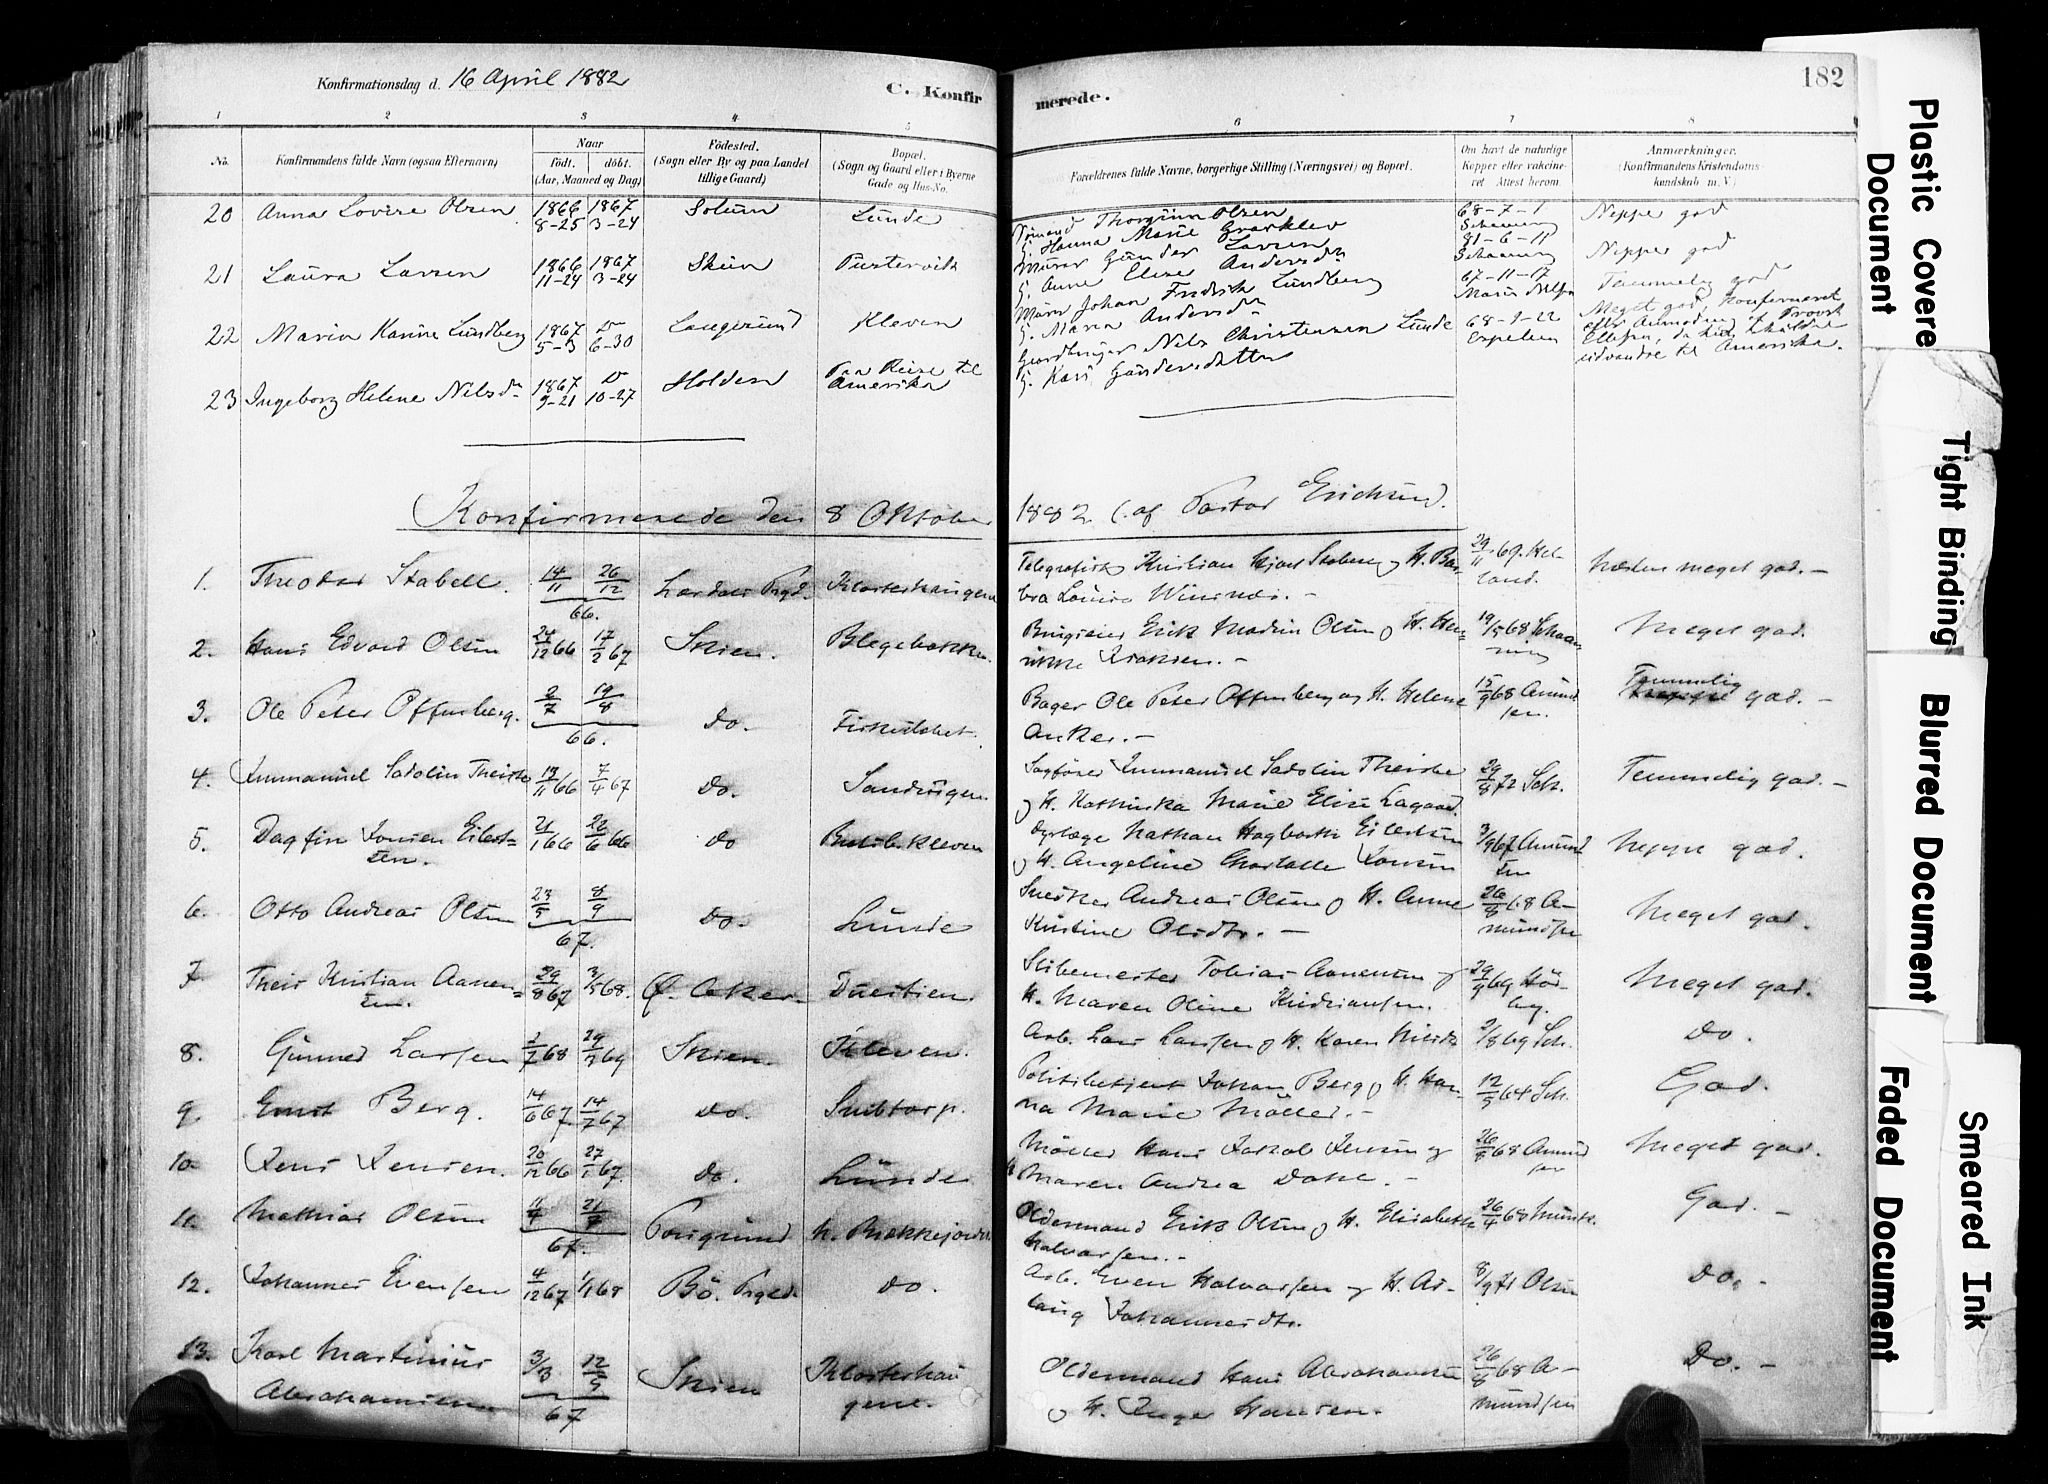 Konfirmationsdag d. 16 April 1882
C. Konfir
merede.
182
1 2 3 4 5 6 7 8
No.
Konfirmandens fulde Navn (ogsaa Efternavn)
Naar
födt. döbt.
(Aar, Maaned og Dag)
Födested.
(Sogn eller By og paa Landet
tillige Gaard)
Bopæl.
(Sogn og Gaard eller i Byerne
Gade og Hus-No.
Forældrenes fulde Navne, borgerlige Stilling (Næringsvei) og Bopæl.
Om havt de naturlige
Kopper eller vakcine-
ret Attest herom.
Anmærkninger.
(Konfirmandens Kristendoms-
kundskab m. V.)
20 Anna Lovise Olsen 1866 8-25 1867 3-24 Solum Lunde
Thorginn Olsen
G. Hanna Marie Grasklev
68-7-1
Schaaning
Neppe god
21 Laura Larsen 1866 11-24 1867 3-24 Skien Pustervik
Murer Gunder Larsen
G. Anne Elise Andersd
81-6-11
Schaaning
Neppe god
22 Maria Karine Lundberg 1867 5-3 Do 6-30 Langesund Kleven
Murer Johan Fredrik Lundberg
G. Maria Andersd
67-11-17
Temmelig god
23 Ingeborg Helene Nilsd 1867 9-21 Do 10-27 Holden Paa Reise til
Amerika
Gaardbruger Nils Christensen Lunde
G. Kari Gundersdatter
68-9-22
Espelien
Meget god. Konfirmeret
efter Anmodning af Provst
Ellefsen, da hun skulde
udvandre til Amerika.
Konfirmerede den 8 Oktober
1882 (af Pastor Erichsen).
1. Theodor Stabell. 14/11 26/12 66. Lardals Prgd. Klosterhaugene
Telegrafist Kristian Hjort Stabell og H. Bar-
bra Louise Winsnes. -
29/11 69. Hel-
land.
Næsten meget god. -
2. Hans Edvard Olsen 24/12 66 17/2 67 Skien. Blegebakken.
Erik Martin Olsen og H. Hen-
rikke Isaksen. -
19/5 68 Schaa-
ning
Meget god.
3. Ole Peter Offenberg. 2/7 19/8 66. Do. Fiskeslabet.
Bager Ole Peter Offenberg og H. Helene
Anker. -
15/9 68 Amund-
sen.
Temmelig god. -
4. Immanuel Sadolin Theiste 19/11 66 7/4 67 Do. Sandvigen.
Sagfører Immanuel Sadolin Theiste
og H. Kathinka Marie Elise Lagaard.
29/8 72 Sch.
Temmelig god. -
5. Dagfin Jonsen Eilert-
sen. 21/1 66 22/6 66 Do Kleven
Dyrlæge Nathan Hagbarth Eilertsen
og H. Angeline Charlotte Jonsen
3/9 67 Amund
sen
Neppe god.
6. Otto Andreas Olsen 23/5 8/9 67. Do. Lunde
Snedker Andreas Olsen og H. Anne
Kristine Olsdtr. -
26/8 68 A-
mundsen
Meget god.
7. Theis Kristian Aanen-
sen. 29/8 67 3/5 68. Ø. Aker. Duestien.
Slibemester Tobias Aanensen og
H. Maren Oline Kristiansen.
29/9 69 Hös-
Meget god.
8. Gunned Larsen 2/7 68 29/3 69 Skien. Kleven.
Arb. Lars Larsen og H. Karen Nilsdtr
2/8 69 Sch.
Do.
9. Ernst Berg. 14/6 67. 14/7 67 Do. Snibtorp.
Politibetjent Johan Berg og H. Han-
na Marie Möller. -
12/5 64 Sch.
God.
10. Jens Jensen. 20/12 66 27/1 67. Do. Lunde
Möller Hans Jakob Jensen og
H. Maren Andrea Dahl. -
26/8 68 Amund
sen
Meget god.
11. Mathias Olsen 4/4 21/7 67. Porsgrund N. Brekkejordet
Oldermand Erik Olsen og H. Elisabeth
Halvorsen. -
26/4 68 Munk.
God. -
12. Johannes Evensen 4/12 67 1/1 68 Bö. Prgd. Do.
Arb. Even Halvorsen og H. As-
laug Johannesdtr.
8/9 71 Olsen
Do. -
13. Karl Martinius
Abrahamsen 3/3 12/5 67 Skien Klosterhau
gene.
Oldermand Hans Abrahamsen
og H. Inger Hansen.
26/8 68 A-
mundsen
Do. -
Plastic Covere
Document
Tight Binding
Blurred Document
Faded Document
Smeared Ink